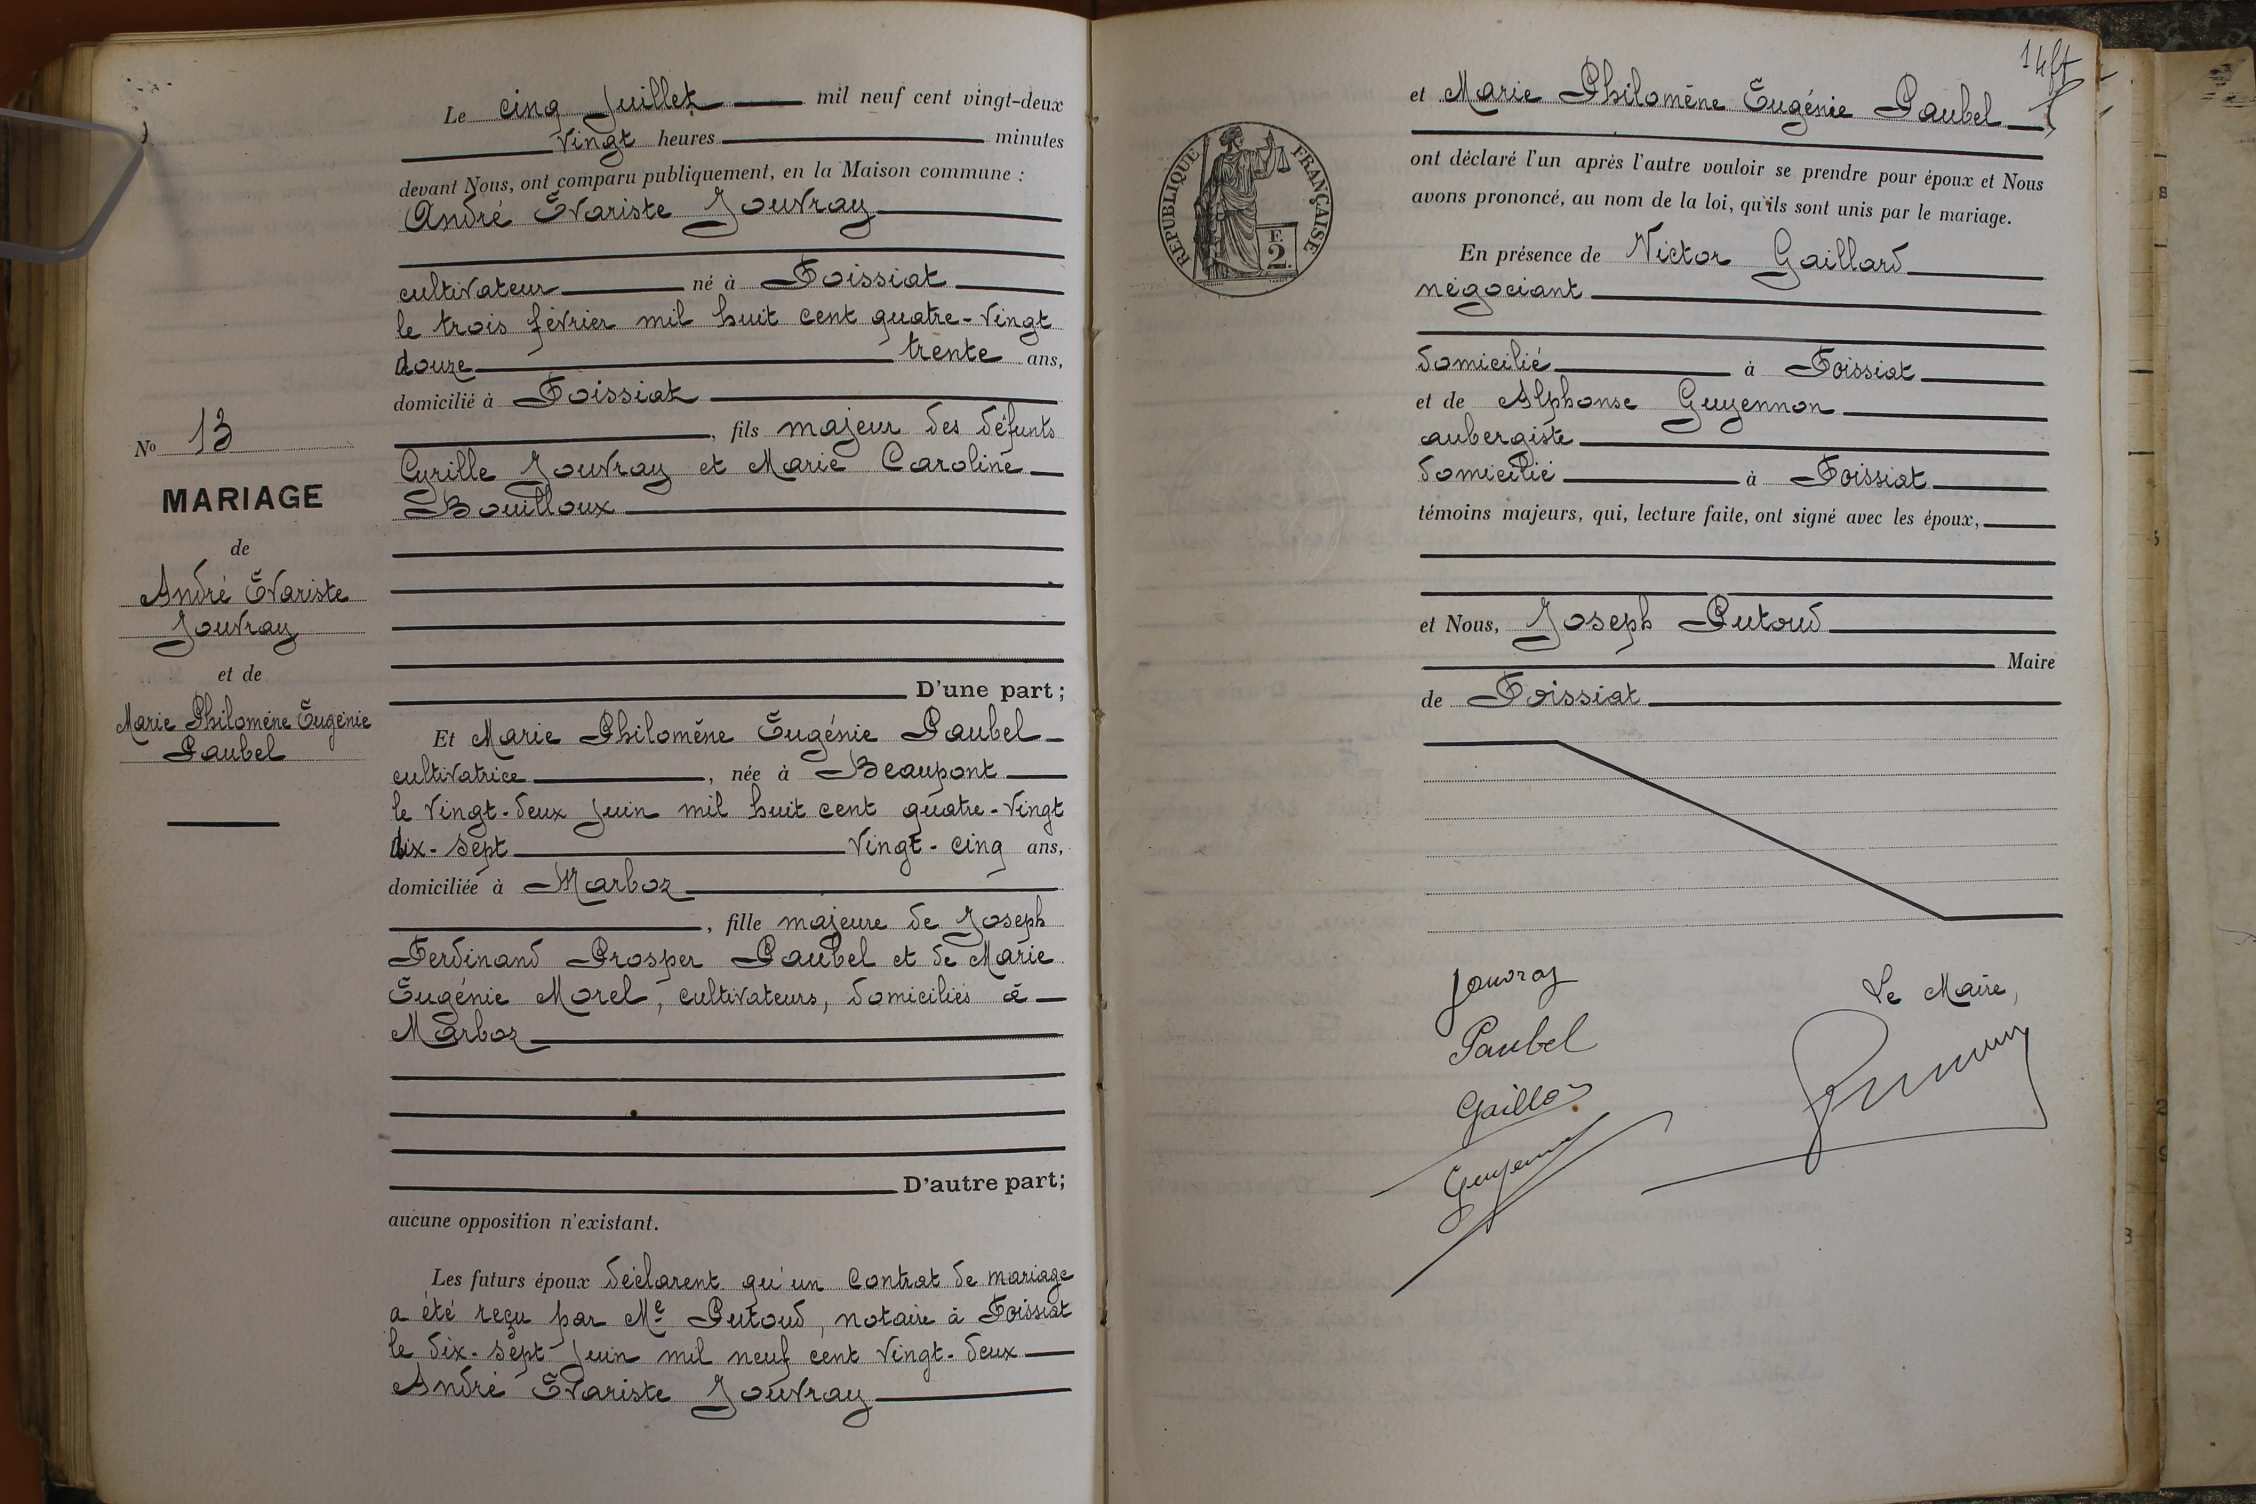 Le cinq Juillet mil neuf cent vingt-deux
vingt heures minutes
devant Nous, ont comparu publiquement, en la Maison commune :
André Évariste Jouvray
cultivateur né à Foissiat
le trois février mil huit cent quatre-vingt
douze trente ans,
domicilié à Foissiat
, fils majeur des défunts
Cyrille Jouvray et Marie Caroline
Bouilloux
D'une part ;
Et Marie Philomène Eugénie Paubel
cultivatrice , née à Beaupont
le vingt-deux juin mil huit cent quatre-vingt
dix-sept vingt-cinq ans,
domiciliée à Marboz
, fille majeure de Joseph
Ferdinand Prosper Paubel et de Marie
Eugénie Morel, cultivateurs, domiciliés à
Marboz
D'autre part ;
aucune opposition n'existant.
Les futurs époux déclarent qu'un contrat de mariage
a été reçu par Me Putoud, notaire à Foissiat
le dix-sept juin mil neuf cent vingt-deux
André Évariste Jouvray
No 13
MARIAGE
de
André Évariste
Jouvray
et de
Marie Philomène Eugénie
Paubel
RÉPUBLIQUE FRANÇAISE
F.
2.
et Marie Philomène Eugénie Paubel
ont déclaré l'un après l'autre vouloir se prendre pour époux et Nous
avons prononcé, au nom de la loi, qu'ils sont unis par le mariage.
En présence de Victor Gaillard
négociant
domicilié à Foissiat
et de Alphonse Guyennon
aubergiste
domicilié à Foissiat
témoins majeurs, qui, lecture faite, ont signé avec les époux,
et Nous, Joseph Putoud
Maire
de Foissiat
Jouvray
Paubel
Gaillard
Guyennon
Le Maire,